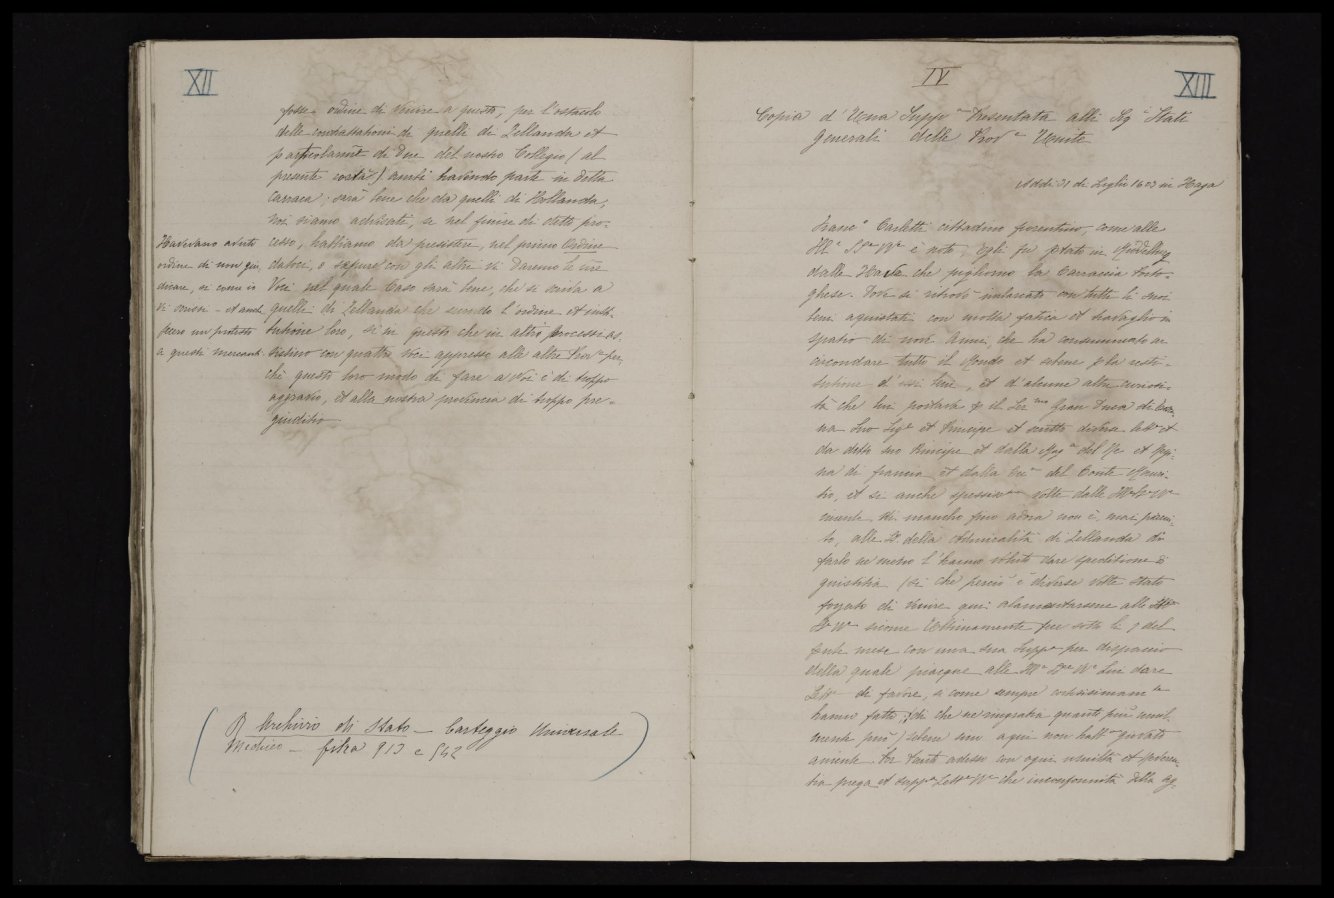 XII
fosse ordine di venire a questo, per l'ostacolo
delle contrattationi de quelli de Zellanda et
particolarmte di Due del nostro Collegio (al
presente costà) ambi havendo parte in detta
Carraca; sarà bene che da quelli di Hollanda,
noi siamo advisati, se nel finire di detto pro-
cesso, habbiamo da presistere, nel primo Ordine
datoci, o seppure con gli altri vi daremo le nre
Voci nel quale Caso sarà bene, che si scriva a
quelli di Zellanda che secondo l'ordine et insti-
tutione loro, si in questo che in altri processi as-
sistino con quattro voci appresso alle altre Prove per-
chè questo loro modo di fare a Noi è di troppo
aggravio, et alla nostra provincia di troppo pre-
giuditio
Havevano avuto
ordine di non giu-
dicare, si come io
vi scrissi - et anch
fecero un protesto
a questi mercanti
R Archivio di Stato - Carteggio Universale
Mediceo - filza 913 e 542
IV
XIII
Copia d'Una Suppca Presentata alli Sigi Stati
Generali delle Prove Unite
Addi 31 di Luglio 1603 in Haga
Franco Carletti cittadino fiorentino, come alle
Ille SSrie Vre è noto, egli fu portato in Middelburg
dalle Nave che pigliorno la Carracca Porto-
ghese. Dove si ritrovò imbarcato con tutti li suoi
beni aquistati con molta fatica et travaglio in
spatio di nove Anni, che ha consummato in
circondare tutto il Mondo et sebene p la resti-
tutione di essi beni, et d'alcune altre curiosi-
tà che lui portava p il Sermo Gran Duca di Tosca-
na Suo Sigre et Principe et scritto diverse lettre et
da detto suo Principe et dalla Magtà del Re et Regi-
na di francia et dalla Ecca del Conte Mauri-
tio, et si anche spessisse volte dalle Ille Sie Vre
niente di mancho fino adora non è mai piaciu-
to, alli Sri della Admiralità di Zellanda di
farlo ne meno l'hanno voluto dare speditione di
giustitia (si che perciò è diverse volte stato
forzato di venire qui alamentarsene alle Ille
Sie Vre sicome Ultimamente fece sotto li 9 del
pnte mese con una sua Suppca per dispaccio
della quale piacque alle Ille Sie Vre Lui dare
Lettre di favore, si come sempre cortesissimamte
hanno fatto; (di che ne ringratia quanto più umil-
mente può) sebene sin a qui non hatto giovato
aniente. Per tanto adesso con ogni umiltà et riveren-
tia prega et suppca LeSSrie Vre che inconformità della ag-